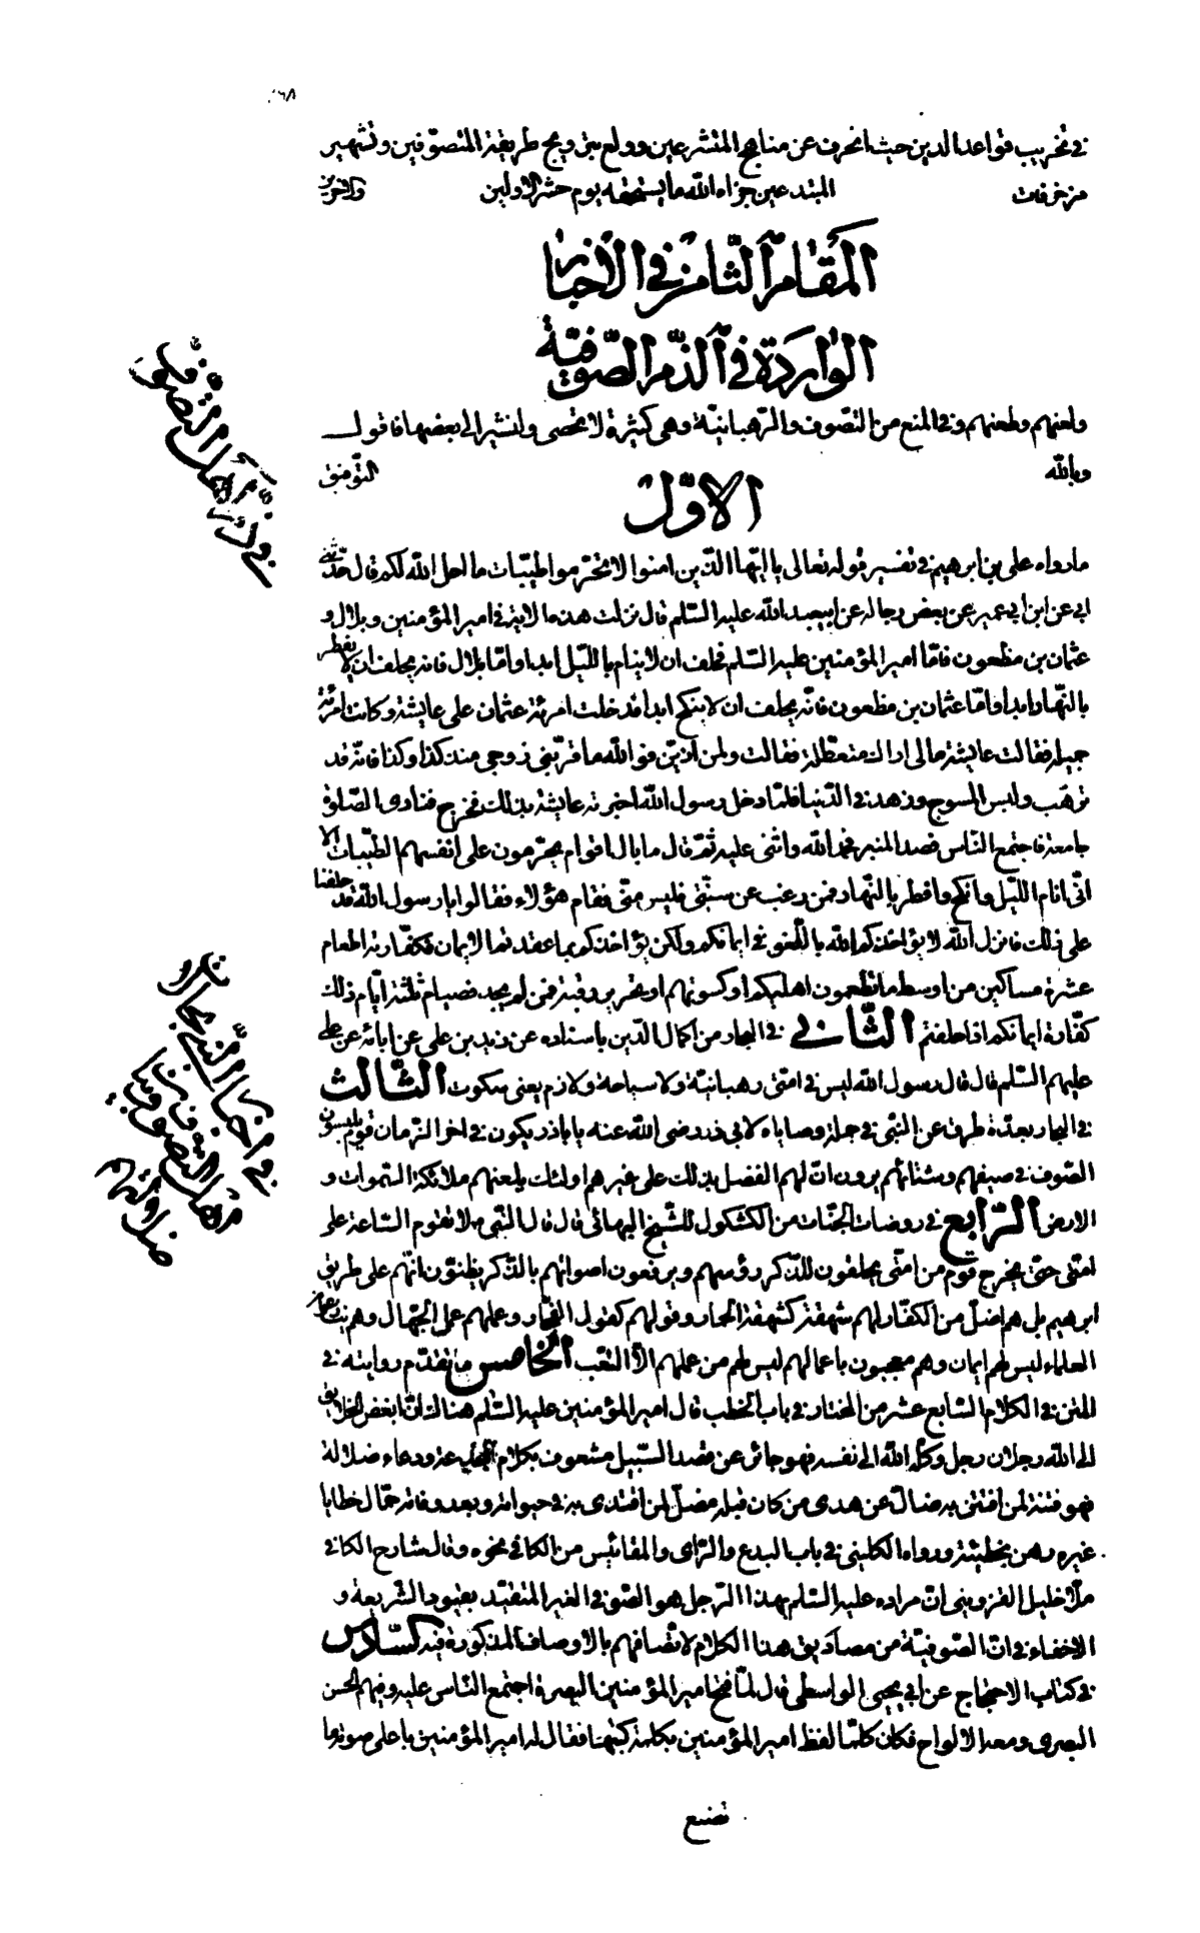 في تخريب قواعد الدين حيث انحرف عن مناهج المتشرعين وولع بترويج طريقة المتصوّفين وتشهير
مزخرفات المبتدعين جزاه الله ما يستحقه يوم حشر الاولين والاخرين
المقام الثامن في الاخبار
الواردة في الذّم الصّوفيّة
ولعنهم وطعنهم وفي المنع من التصّوف والرّهبانيّة وهي كثيرة لا تحصى ولنشير الى بعضها فاقول
وبالله التّوفيق
الاوّل
ما رواه علي بن ابرهيم في تفسير قوله تعالى يا ايّها الذّين امنوا لا تحرّموا طيّبات ما احل الله لكم قال حدّثني
ابي عن ابن ابي عمير عن بعض رجاله عن ابيعبد الله عليه السّلم قال نزلت هذه الاية في امير المؤمنين وبلال و
عثمان بن مظعون فامّا امير المؤمنين عليه السّلم فحلف ان لا ينام باللّيل ابدا وامّا بلال فانه يحلف ان لا يفطر
بالنّهار ابدا وامّا عثمان بن مظعون فانّه يحلف ان لا ينكح ابدا فدخلت امرئة عثمان على عايشة وكانت امرئة
جميلة فقالت عايشة مالى اراك متعطّلة فقالت ولمن اتزيّن فو الله ما قرّبنى زوجى منذ كذا وكذا فانّه قد
ترهّب ولبس المسوح وزهد في الدّنيا فلمّا دخل رسول الله اخبرته عايشة بذلك فخرج فنادى الصّلوة
جامعة فاجتمع النّاس فصعد المنبر فحمد الله واثنى عليه ثمّ قال ما بال اقوام يحرّمون على انفسهم الطّيبات الا
انّى انام اللّيل وانكح وافطر بالنّهار فمن رغب عن سنّتى فليس منّى فقام هؤلاء فقالوا يا رسول الله قد حلفنا
على ذلك فانزل الله لا يؤاخذكم الله باللّغو في ايمانكم ولكن يؤاخذكم بما عقدتم الايمان فكفّارته اطعام
عشرة مساكين من اوسط ما تطعمون اهليكم او كسوتهم او تحرير رقبة فمن لم يجد فصيام ثلثة ايّام ذلك
كفّارة ايمانكم اذا حلفتم الثّاني في البحار من اكمال الدّين باسناده عن زيد بن علي عن ابائه عن علي
عليهم السّلم قال قال رسول الله ليس في امتى رهبانيّة ولا سياحة ولا زم يعنى سكوت الثّالث
في البحار بعدّة طرق عن النّبى في جملة وصاياه لابي ذر رضى الله عنه يا باذر يكون في اخر الزّمان قوم يلبسون
الصّوف في صيفهم وشتائهم يرون انّ لهم الفضل بذلك على غيرهم اولئك يلعنهم ملائكة السّموات و
الارض الرّابع في روضات الجنّات من الكشكول للشّيخ البهائى قال قال النّبى ص لا تقوم السّاعة على
امتى حتى يخرج قوم من امتى يحلقون للذّكر رؤسهم ويرفعون اصواتهم بالذّكر يظنّون انّهم على طريق
ابرهيم بل هم اضلّ من الكفّار لهم شهقة كشهقة الحمار وقولهم كقول الفجّار وعملهم عمل الجهّال وهم ينازعون
العلماء ليس لهم ايمان وهم معجبون باعمالهم ليس لهم من عملهم الاّ التّعب الخامس ما تقدّم روايته في
المتن في الكلام السّابع عشر من المختار في باب الخطب قال امير المؤمنين عليه السّلم هنالك انّ ابغض الخلايق
الى الله رجلان رجل وكّله الله الى نفسه فهو جائر عن قصد السّبيل مشعوف بكلام بدعة ودعاء ضلالة
فهو فتنة لمن افتتن به ضالّ عن هدى من كان قبله مضلّ لمن اقتدى به في حيوته وبعد وفاته حمّال خطايا
غيره رهن بخطيئته ورواه الكلينى في باب البدع والرّاى والمقائيس من الكافي نحوه وقال شارح الكافي
ملاّ خليل القزوينى انّ مراده عليه السّلم بهذا الرّجل هو الصّوفي الغير المتقيّد بقيود الشّريعة و
لا خفاء في انّ الصّوفيّة من مصاديق هذا الكلام لاتّصافهم بالاوصاف المذكورة فيه السّادس
في كتاب الاحتجاج عن ابي يحيى الواسطى قال لمّا فتح امير المؤمنين البصرة اجتمع النّاس عليه وفيهم الحسن
البصرى ومعه الالواح فكان كلّما لفظ امير المؤمنين بكلمة كتبها فقال له امير المؤمنين باعلى صوته ما
تصنع
في ذمّ اهل التّصوّف
في اخبار النّبي بحال
اهل التصوف وبيان
ضلالتهم